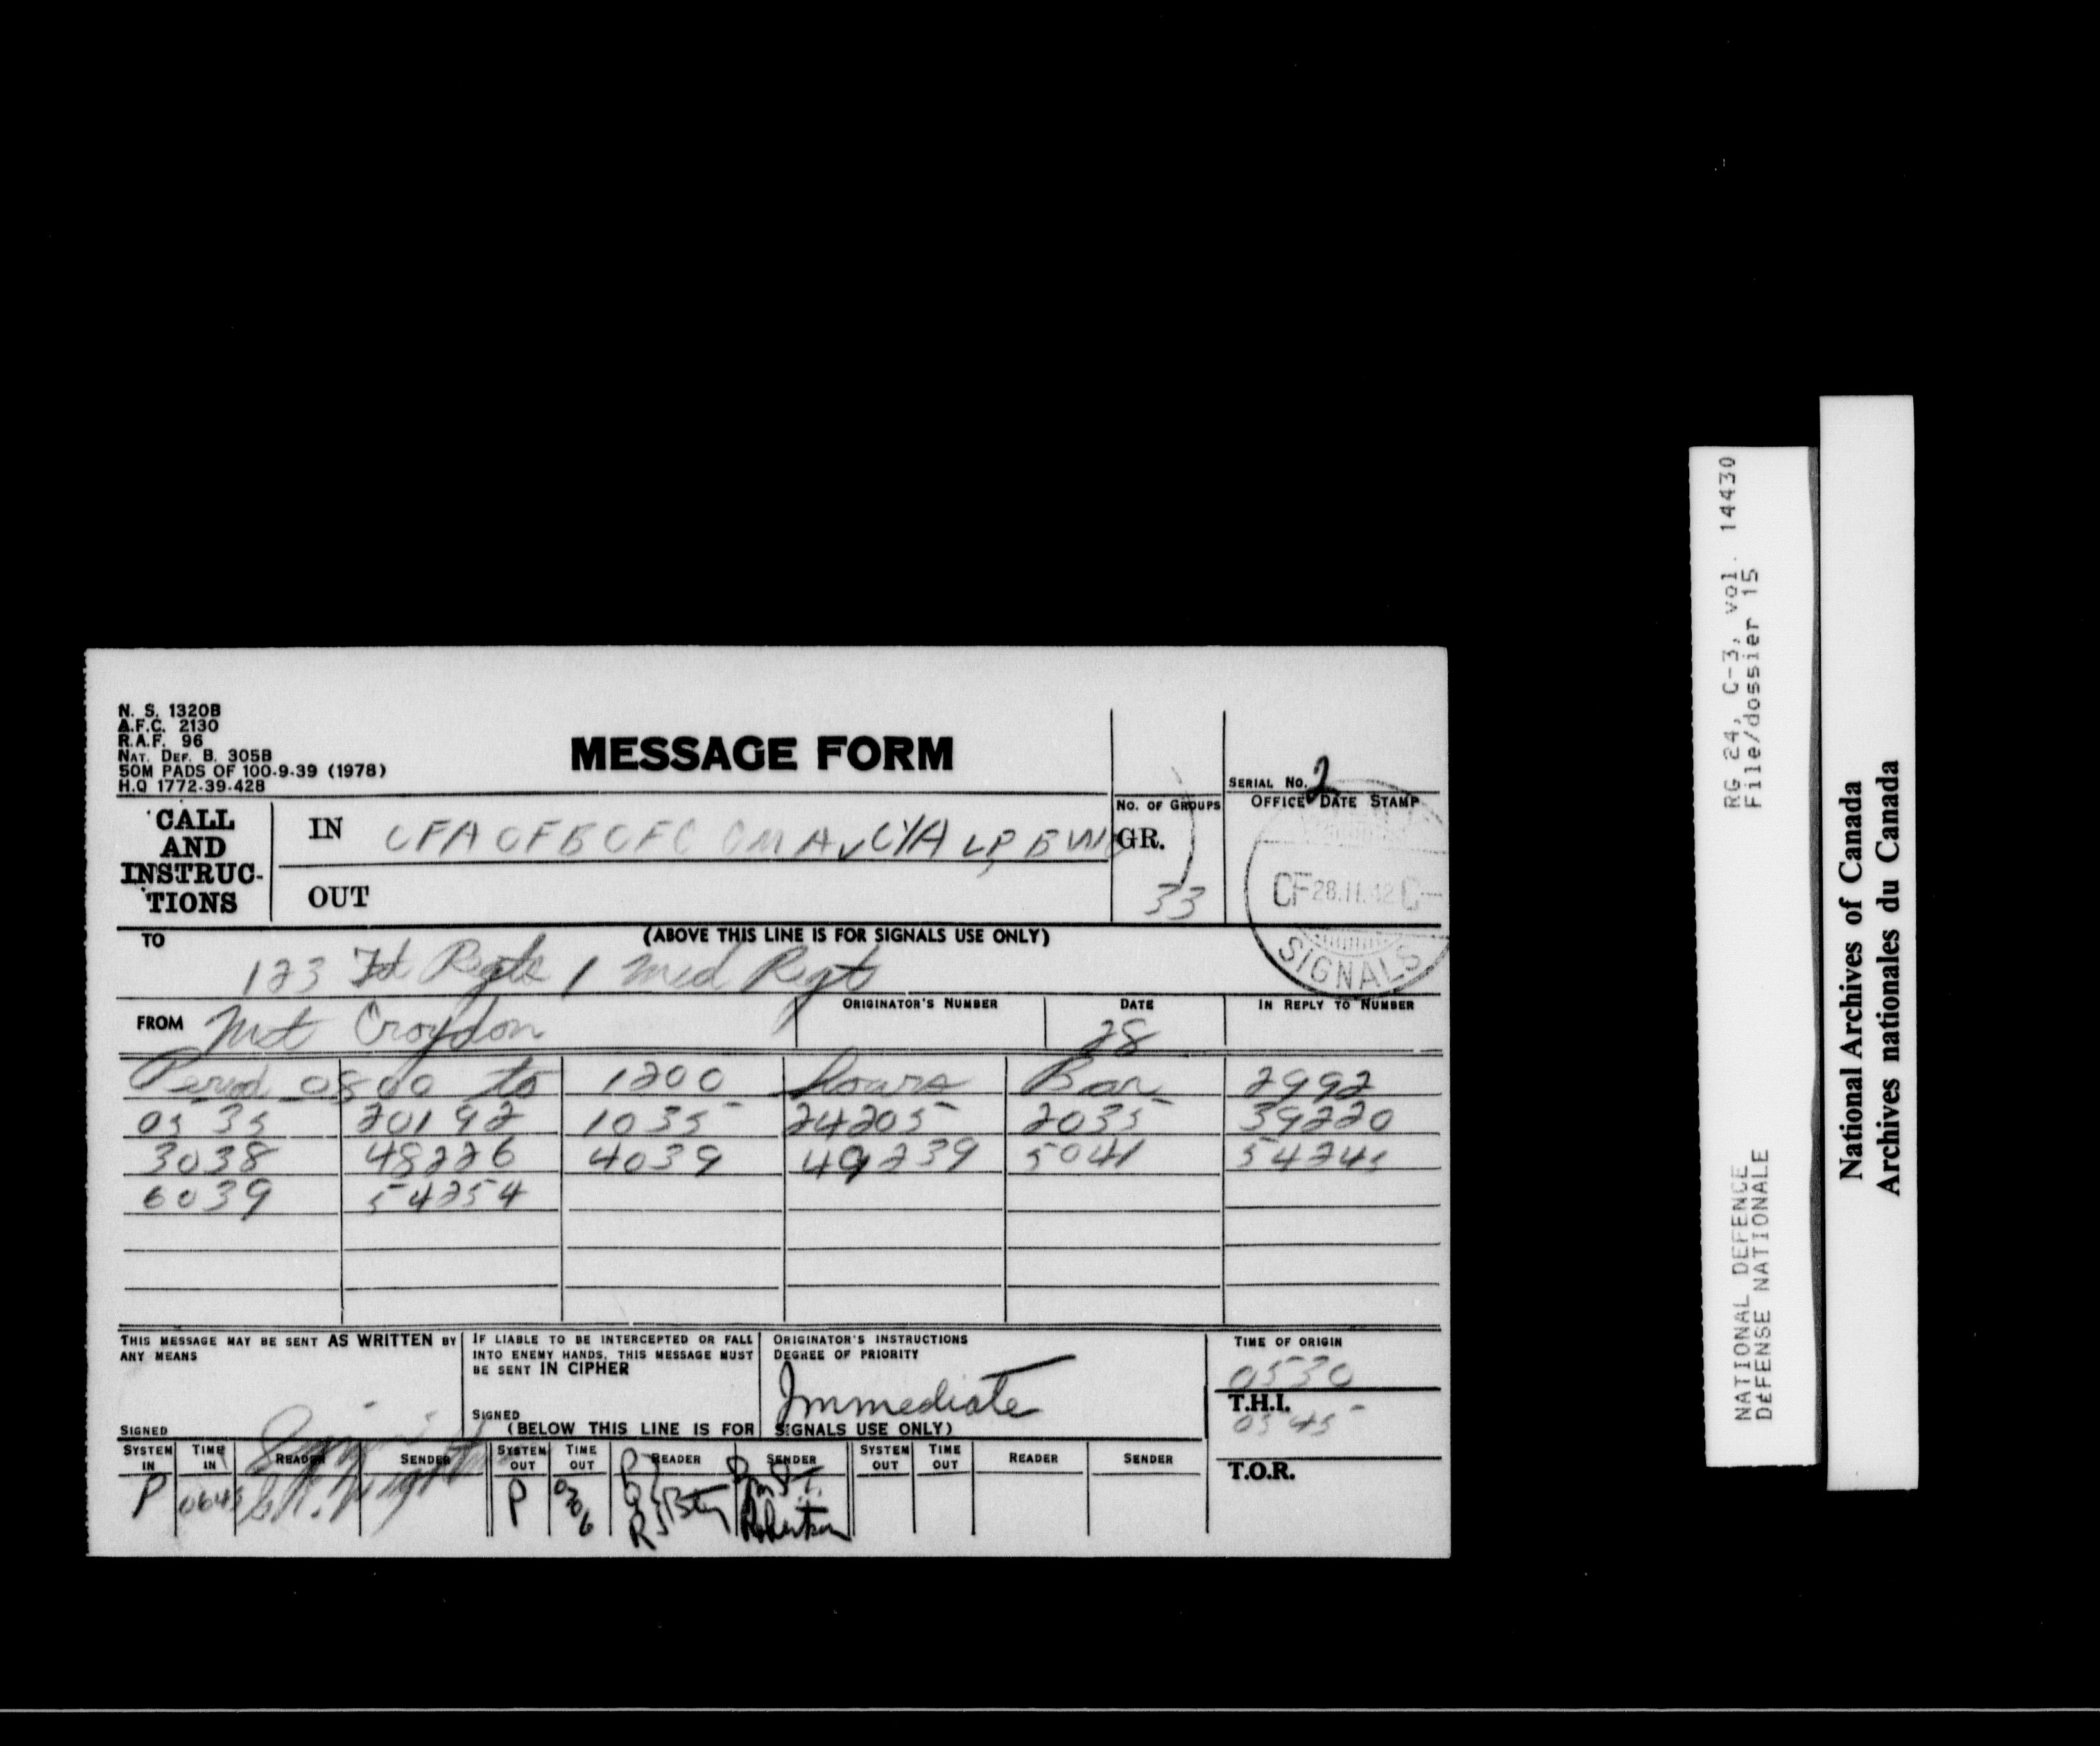 N. S. 1320B
A.F.C. 2130
R.A.F. 96
NAT. DEF. B. 305B
50M PADS OF 100-9-39 (1978)
H.Q 1772-39-428
MESSAGE FORM
SERIAL NO. 2
CALL AND INSTRUC-TIONS
IN CFA CFB CFC CMA v CYA LP
OUT
NO. OF GROUPS
GR.
33
OFFICE DATE STAMP
CF 28.11.42 C
SIGNALS
(ABOVE THIS LINE IS FOR SIGNALS USE ONLY)
TO
123 Fd Regts 1 Med Regt
FROM Met Croydon
ORIGINATOR'S NUMBER
DATE
28
IN REPLY TO NUMBER
Period 0800 to 1200 hours Bar 2992
0535 20192 1035 24205 2035 39220
3038 48226 4039 49239 5041 54245
6039 54254
THIS MESSAGE MAY BE SENT AS WRITTEN BY ANY MEANS
SIGNED
IF LIABLE TO BE INTERCEPTED OR FALL INTO ENEMY HANDS, THIS MESSAGE MUST BE SENT IN CIPHER
SIGNED
ORIGINATOR'S INSTRUCTIONS
DEGREE OF PRIORITY
Immediate
TIME OF ORIGIN
0530
T.H.I.
0545
T.O.R.
(BELOW THIS LINE IS FOR SIGNALS USE ONLY)
SYSTEM IN TIME IN READER SENDER SYSTEM OUT TIME OUT READER SENDER SYSTEM OUT TIME OUT READER SENDER
P P Robertson
RG 24, C-3, vol. 14430
File/dossier 15
NATIONAL DEFENCE
DÉFENSE NATIONALE
National Archives of Canada
Archives nationales du Canada